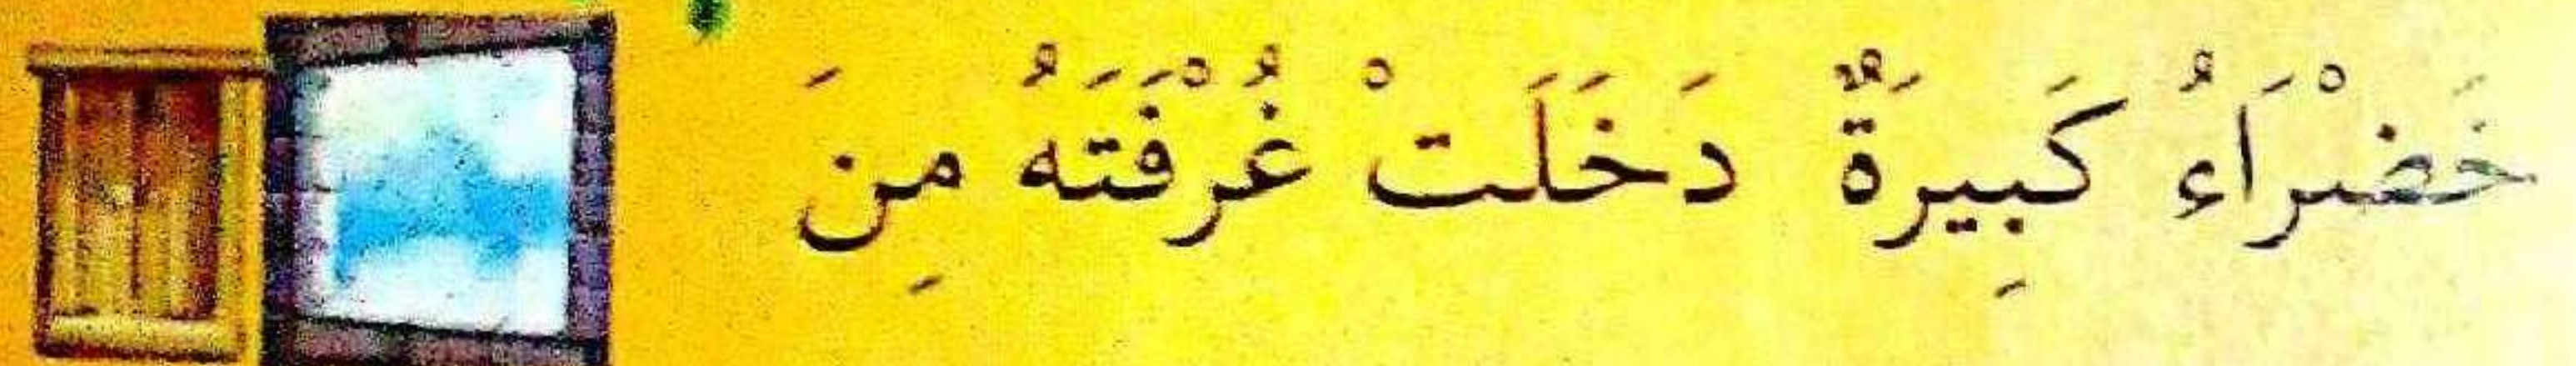 خَضْرَاءُ كَبِيرَةٌ دَخَلَتْ غُرْفَتَهُ مِنَ